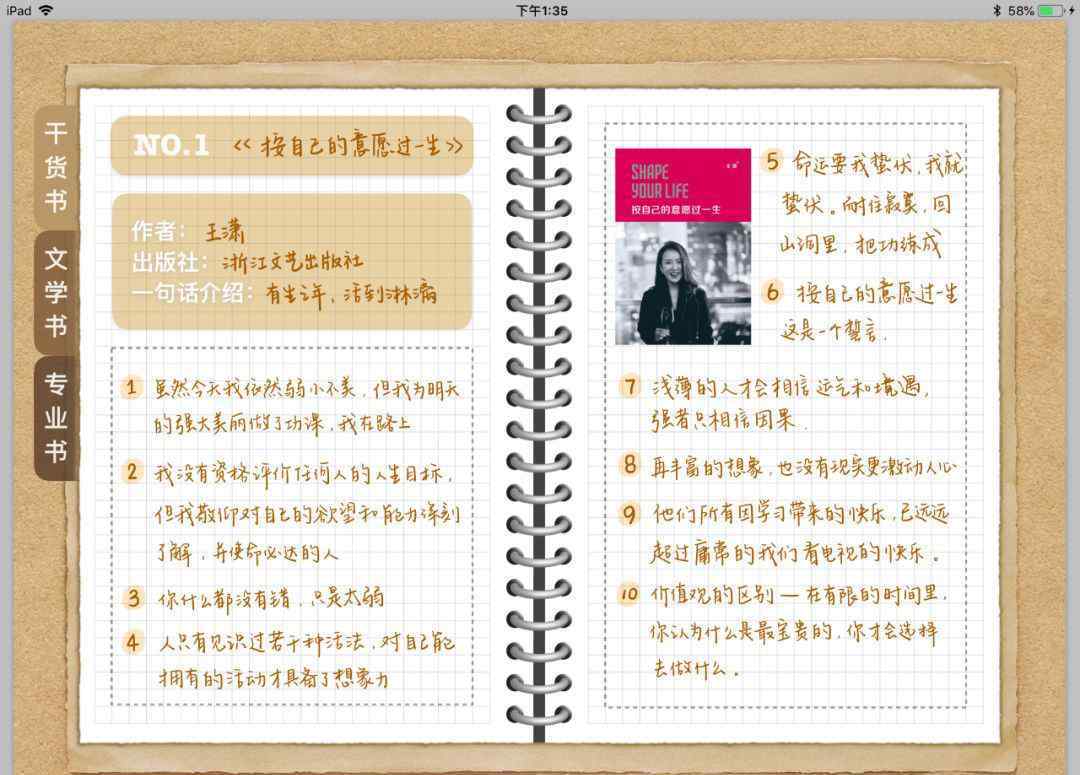 iPad
下午1:35
58%
干货书
文学书
专业书
NO.1 《按自己的意愿过一生》
作者：王潇
出版社：浙江文艺出版社
一句话介绍：有生之年，活到淋漓
1 虽然今天我依然弱小不美，但我为明天
的强大美丽做了功课，我在路上
2 我没有资格评价任何人的人生目标，
但我敬仰对自己的欲望和能力深刻
了解，并使命必达的人
3 你什么都没有错，只是太弱
4 人只有见识过若干种活法，对自己能
拥有的活动才具备了想象力
SHAPE
YOUR LIFE
按自己的意愿过一生
5 命运要我蛰伏，我就
蛰伏。耐住寂寞，回
山洞里，把功练成
6 按自己的意愿过一生
这是一个誓言．
7 浅薄的人才会相信运气和境遇，
强者只相信因果．
8 再丰富的想象，也没有现实更激动人心
9 他们所有因学习带来的快乐，已远远
超过庸常的我们看电视的快乐。
10 价值观的区别—在有限的时间里，
你认为什么是最宝贵的，你才会选择
去做什么。